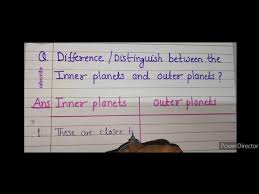 Q. Difference / Distinguish between the
Inner planets and outer planets?
Ans Inner planets outer planets
1 These are closer t
PowerDirector